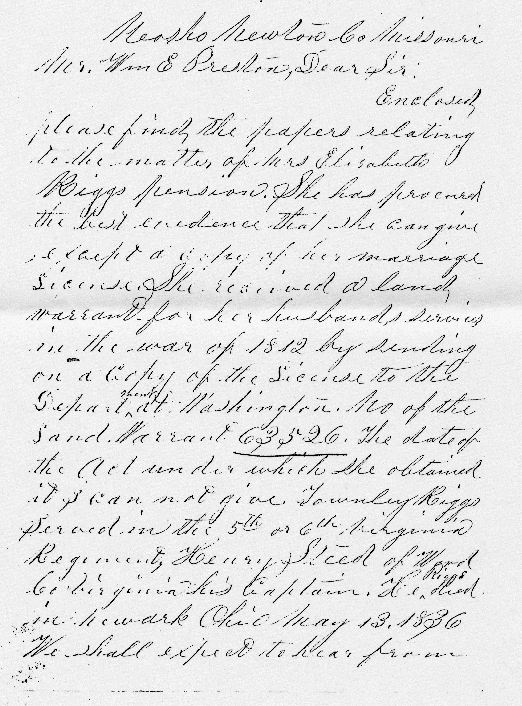 Neosho Newton Co Missouri
Mr. Wm E Preston, Dear Sir:
Enclosed,
please find, the papers relating
to the matter, of Mrs Elizabeth
Riggs pension. She has procured
the best evidence that she can give
except a copy of her marriage
License. She received a land,
warrant for her husbands service
in the war of 1812 by sending
on a Copy of the License to the
Depart^ment at Washington. No of the
Land Warrant 63526. The date of
the Act under which she obtained
it I can not give. Townley Riggs
Served in the 5th or 6th Virginia
Regiment, Henry Steed of Wood
Co Virginia his Captain. He, Riggs died
in Newark Ohio May 13, 1836
We shall expect to hear from